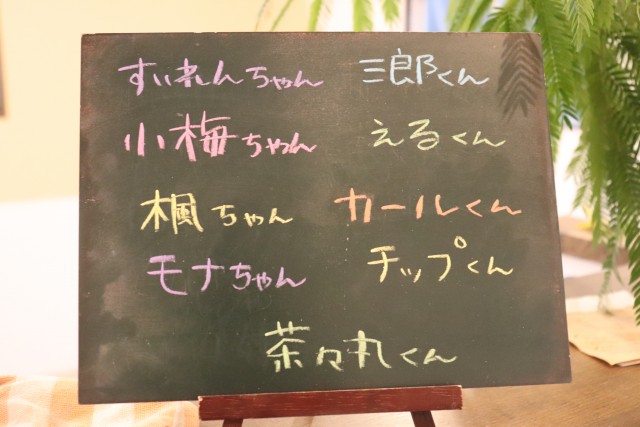 すいれんちゃん 三郎くん
小梅ちゃん えるくん
楓ちゃん カールくん
モナちゃん チップくん
茶々丸くん